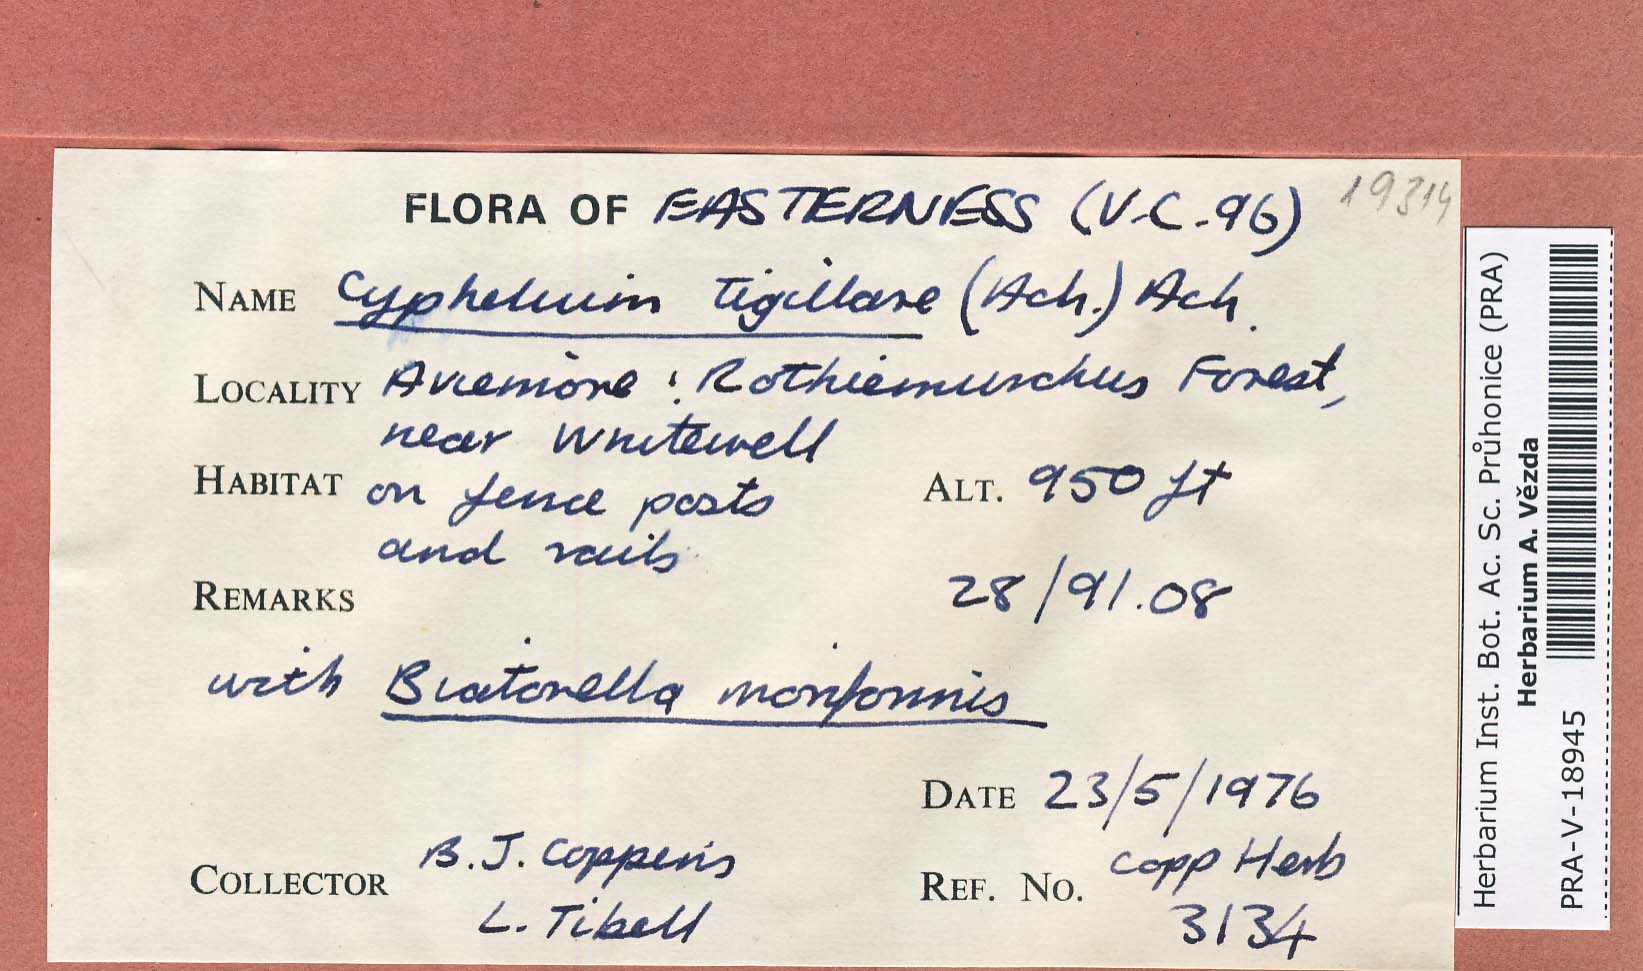 FLORA OF EASTERNESS (V.C.96)
19314
NAME Cyphelium tigillare (Ach.) Ach.
LOCALITY Aviemore: Rothiemurchus Forest,
near Whitewell
HABITAT on fence posts
and rails
ALT. 950 ft
REMARKS
28/91.08
with Biatorella moriformis
DATE 23/5/1976
COLLECTOR B.J. Coppins
L. Tibell
REF. NO. Copp Herb
3134
Herbarium Inst. Bot. Ac. Sc. Průhonice (PRA)
Herbarium A. Vězda
PRA-V-18945